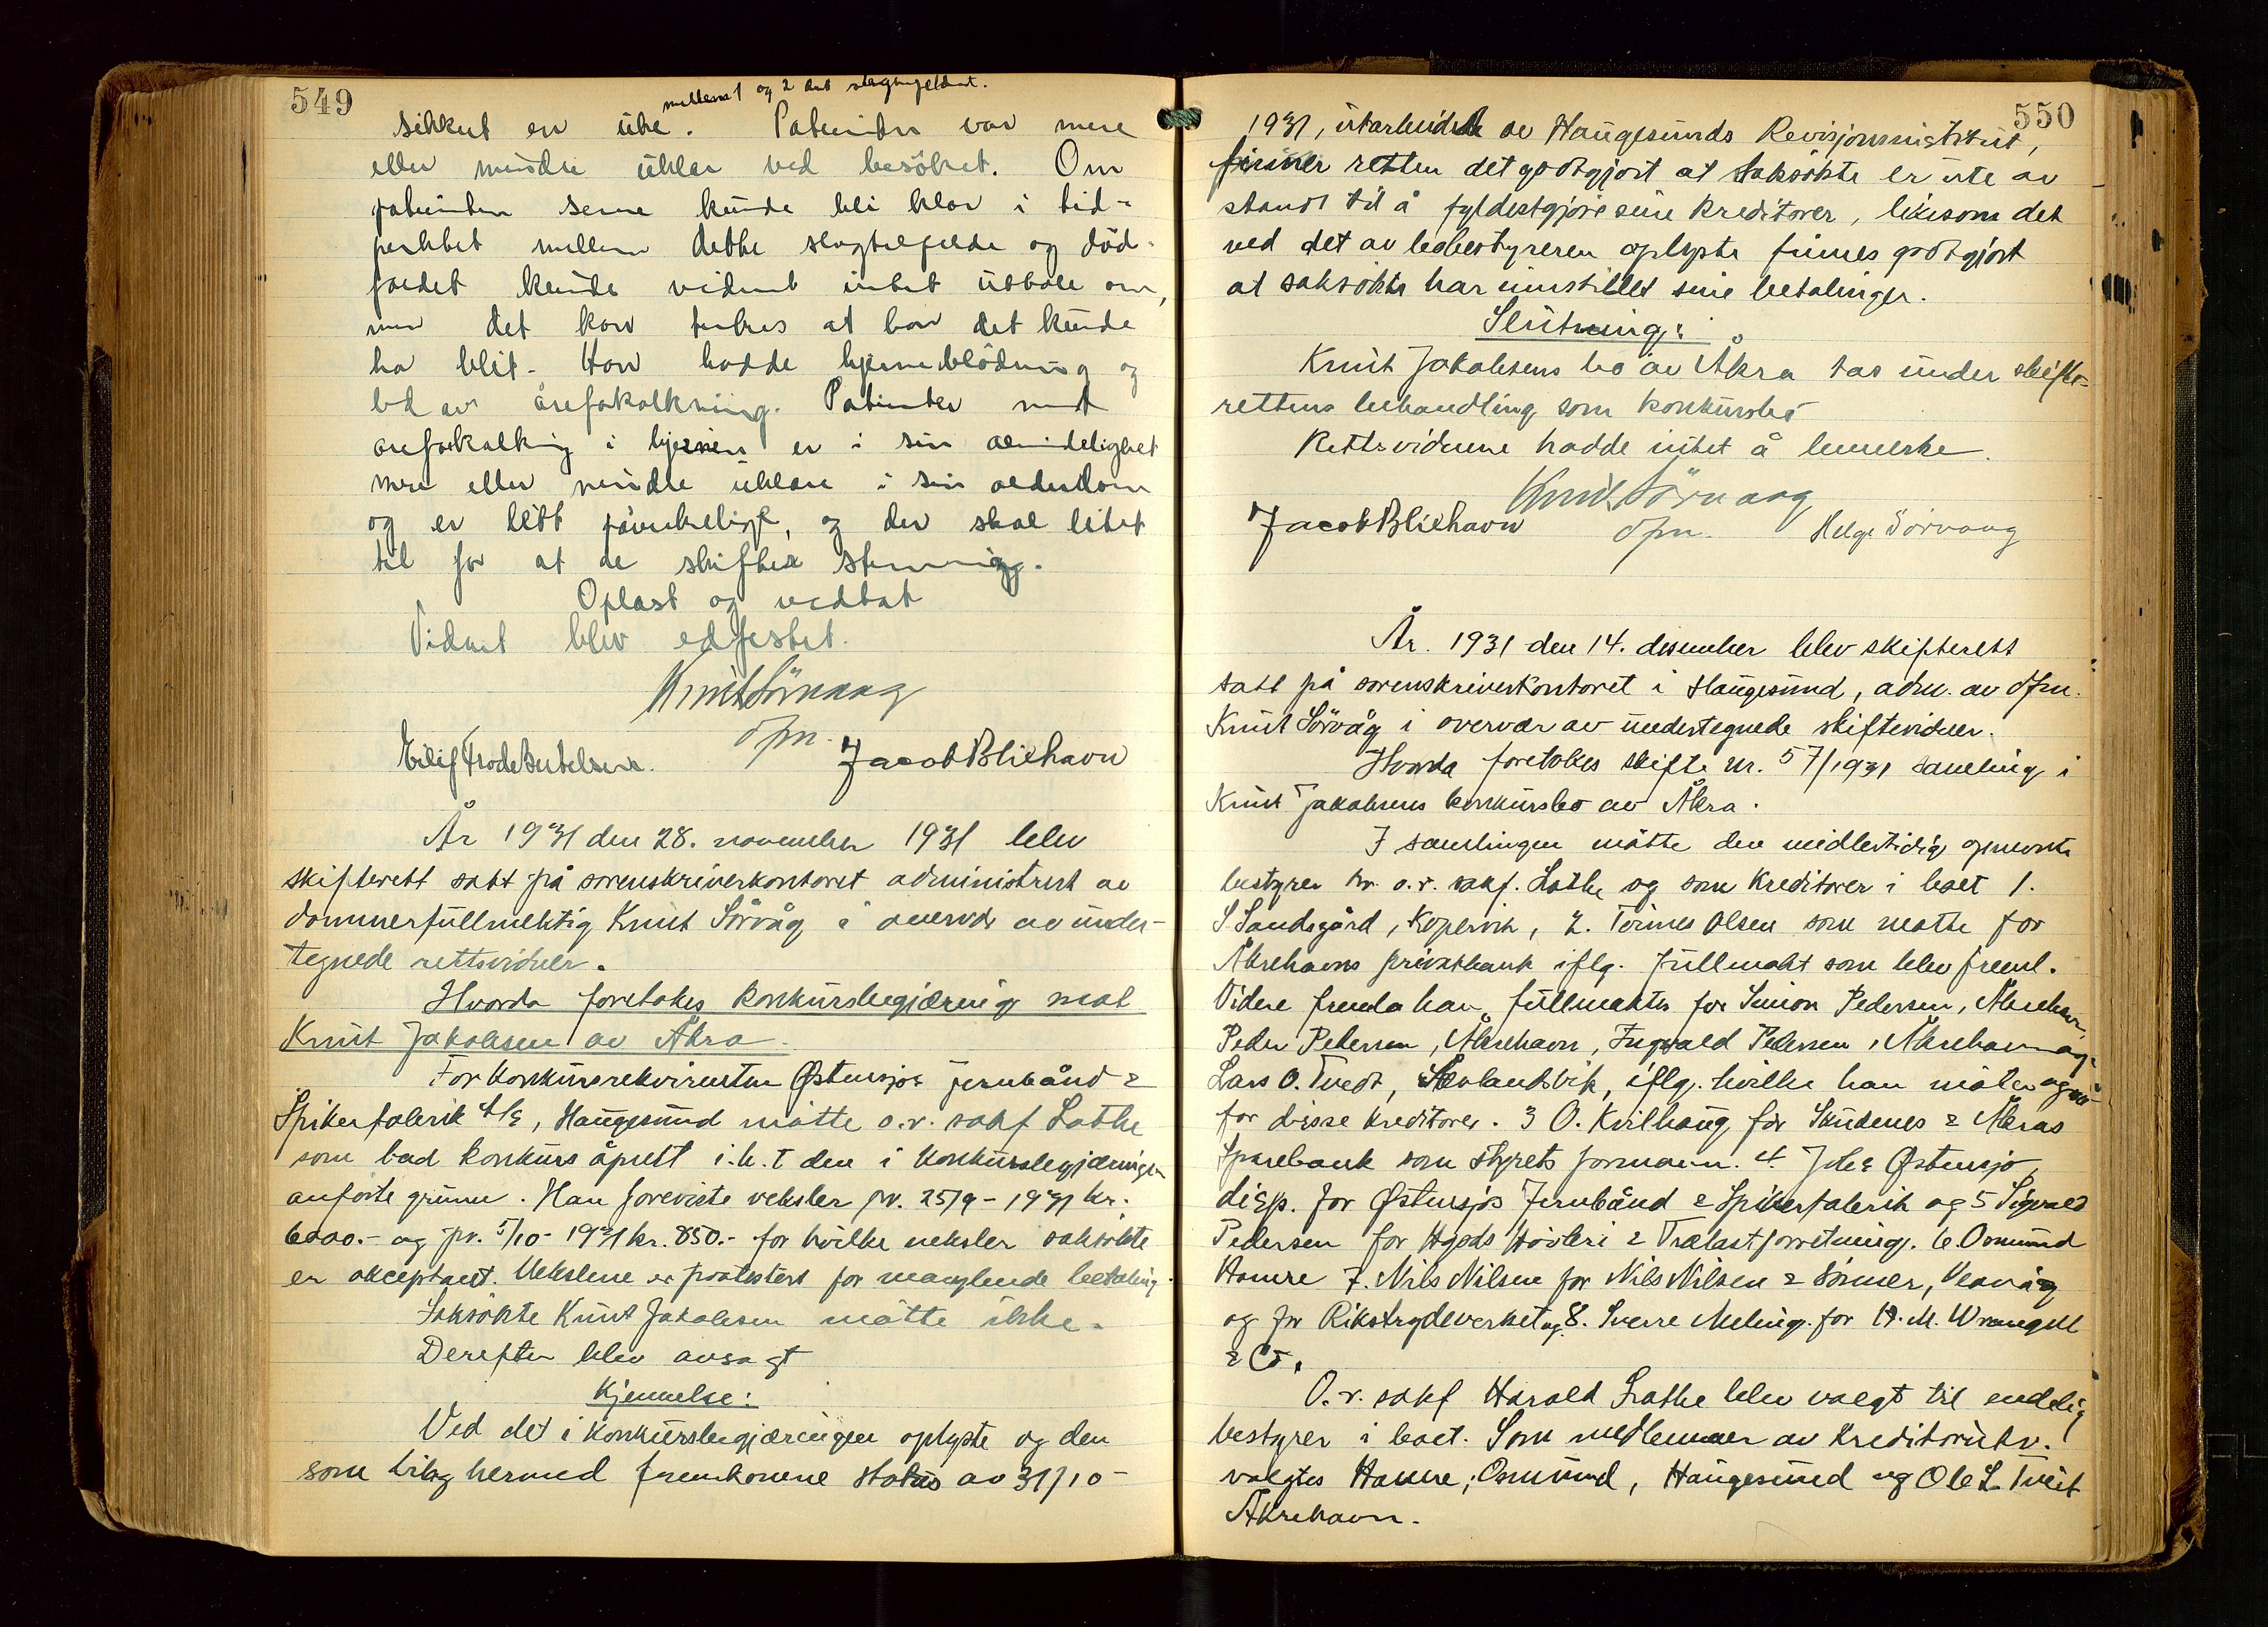 549
mellem 1 og 2 det slagtilfeldet.
sikkert en uke. Patienten var mere
eller mindre uklar ved besöket. Om
patienten senere kunde bli klar i tid-
punktet mellem dette slagtilfelde og död-
faldet kunde vidnet intet uttale om,
men det kan tenkes at han det kunde
ha blit. Han hadde hjerneblödning og
led av årefokalkning. Patienter med
årefokalkning i hjernen er i sin almindelighet
mere eller mindre uklare i sin alderdom
og er lett påvirkelige, og der skal litet
til for at de skifter stemning.
Oplest og vedtat
Vidnet blev edfestet.
Knut Sörvaag
dfm.
Eilif Frode Bertelsen. Jacob Bliehavn
År 1931 den 28. november 1931 blev
skifterett satt på sorenskriverkontoret administrert av
dommerfullmektig Knut Sörvåg i overvær av under-
tegnede rettsvidner.
Hvorda foretokes konkursbegjæring mot
Knut Jakobsen av Åkra.
For konkursrekvirenten Østensjös jernbånd &
Spikerfabrik A/S, Haugesund mötte o.r. sakf Lothe
som bad konkurs åpnet i.h.t den i konkursbegjæringen
anförte grunn. Han foreviste veksler pr. 25/9 - 1931 kr.
6000.- og pr. 5/10 - 1931 kr. 850.- for hvilke veksler saksökte
er akceptant. Vekslene er protestert for manglende betaling.
Saksökte Knut Jakobsen mötte ikke.
Derefter blev avsagt
Kjennelse:
Ved det i konkursbegjæringen oplyste og den
som bilag hermed fremkomne status av 31/10 -
550
1931, utarbeidet av Haugesunds Revisjonsinstitut,
finner retten det godtgjort at saksökte er ute av
stand til å fyldestgjöre sine kreditorer, likesom det
ved det av bobestyreren oplyste finnes godtgjort
at saksökte har innstillet sine betalinger.
Slutning:
Knut Jakobsens bo av Åkra tas under skifte-
rettens behandling som konkursbo
Rettsvidnene hadde intet å bemerke.
Knut Sörvaag
Jacob Bliehavn dfm. Helge Sörvaag
År. 1931 den 14. desember blev skifterett
satt på sorenskriverkontoret i Haugesund, adm. av dfm.
Knut Sörvåg i overvær av undertegnede skiftevidner.
Hvorda foretokes skifte nr. 57/1931 samling i
Knut Jakobsens konkursbo av Åkra.
I samlingen mötte den midlertidig opnevnte
bestyrer hr. o.r. sakf. Lothe og som kreditorer i boet 1.
S. Sandsgård, Kopervik, 2. Tönnes Olsen som mötte for
Åkrehavns privatbank iflg. fullmakt som blev freml.
Videre fremla han fullmakter for Simon Pedersen, Åkrehavn
Peder Pedersen, Åkrehavn, Ingvald Pedersen, Åkrehavn og
Lars O. Tvedt, Sævlandsvik, iflg. hvilke han möter også
for disse kreditorer. 3 O. Kvilhaug for Skudenes & Åkras
Sparebank som styrets formann. 4. Johs Østensjö,
disp. for Østensjös Jernbånd & Spikerfabrik og 5 Sigvald
Pedersen for Hgsds Hövleri & Trælastforretning. 6. Osmund
Hamre 7. Nils Nilsen for Nils Nilsen & Sönner, Veavåg
og for Rikstrygdeverket og 8. Sverre Meling. for H. M. Wrangell
& Co.
O.r. sakf Harald Lothe blev valgt til endelig
bestyrer i boet. Som medlemmer av kreditorutv.
valgtes Hamre, Osmund, Haugesund og Ole L. Tveit
Åkrehavn.